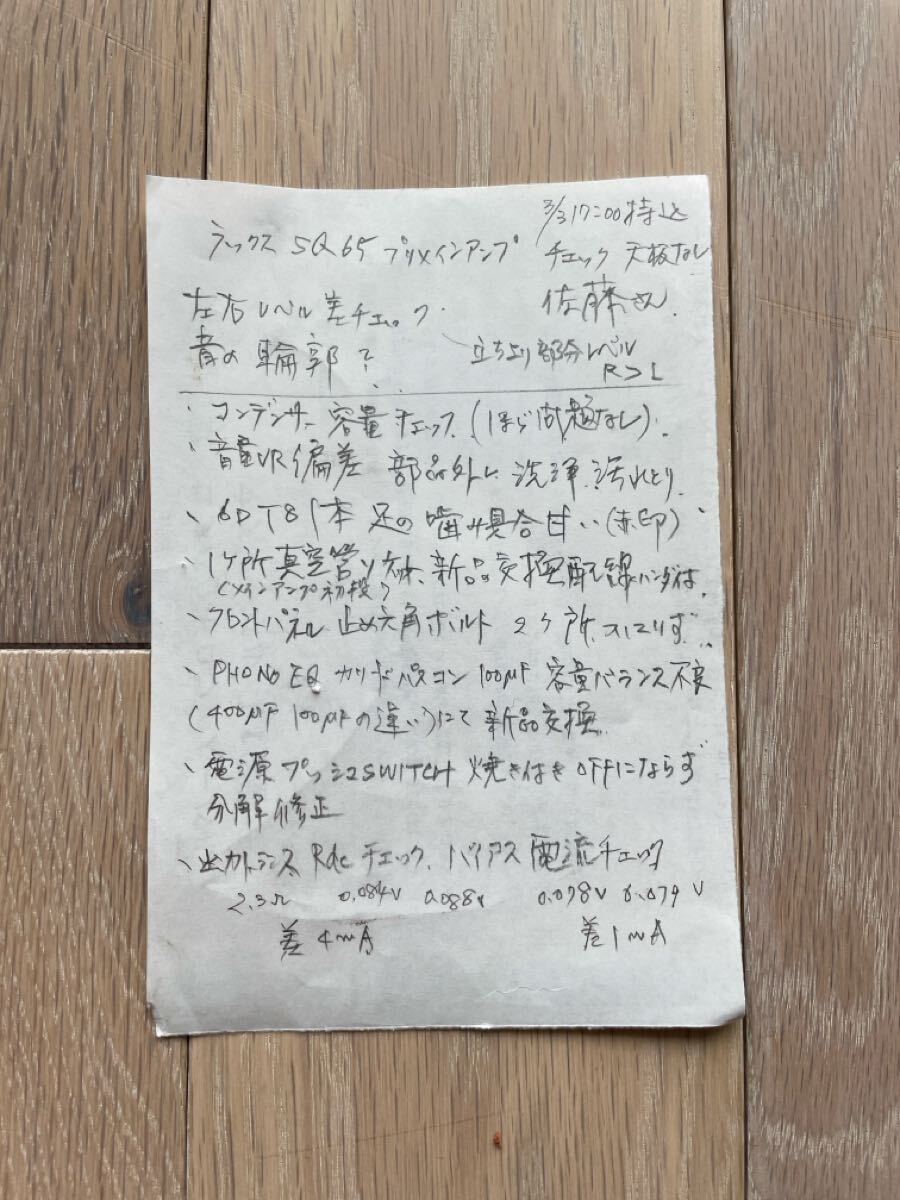 3/3 17:00 持込
ラックス SQ65 プリメインアンプ
チェック 天板なし
左右レベル差チェック
佐藤さん
音の輪郭?
立ち上り部分レベル
R>L
、コンデンサー容量チェック (ほぼ問題なし).
、音量VR偏差 部品外し 洗浄 汚れとり
、6DT8 1本 足の噛み具合甘い (赤印)
、1ケ所真空管ソケット、新品交換配線ハンダ付
(メインアンプ初段)
、フロントパネル 止め六角ボルト 2ケ所
、PHONO EQ カソードパスコン 100μF 容量バランス不良
(400μF 100μFの違い)にて 新品交換
、電源プッシュSWITCH 焼き付き OFFにならず
分解修正
、出力トランス Rdc チェック、バイアス電流チェック
2.3Ω 0.084V 0.088V 0.078V 0.079V
差4mA 差1mA